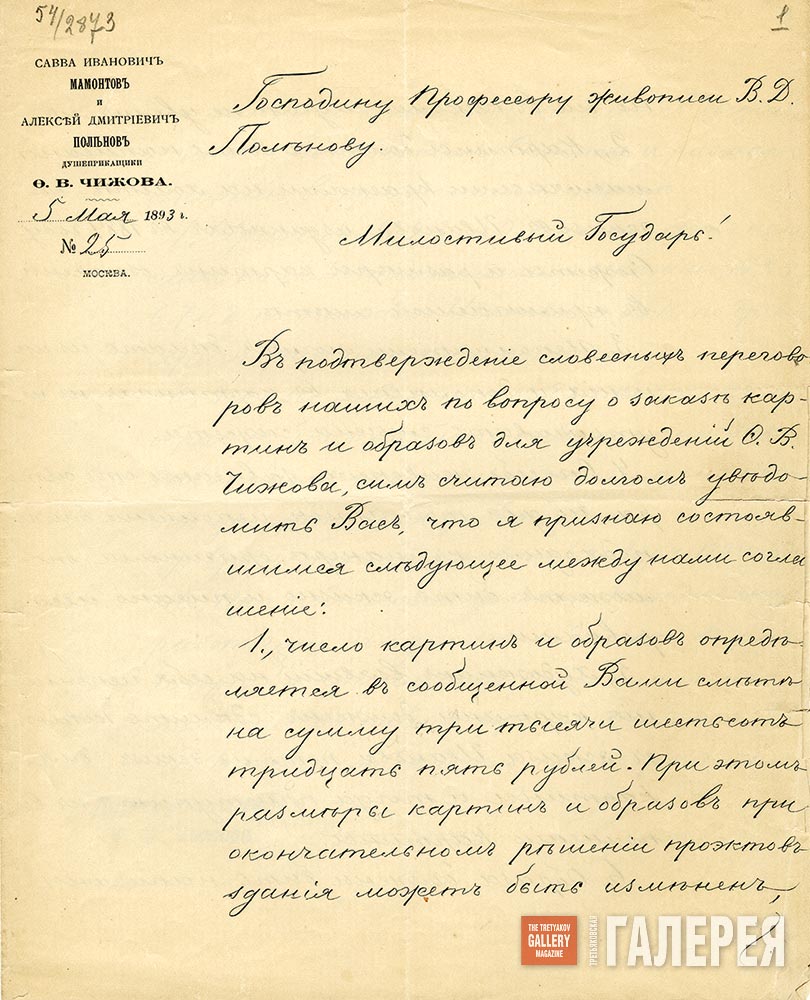 54/2873
1
САВВА ИВАНОВИЧЪ
МАМОНТОВЪ
и
АЛЕКСѢЙ ДМИТРІЕВИЧЪ
ПОЛѢНОВЪ
ДУШЕПРИКАЩИКИ
Ѳ. В. ЧИЖОВА.
5 Мая 1893 г.
№ 25
МОСКВА.
Господину Профессору живописи В. Д.
Полѣнову.
Милостивый Государь!
Въ подтвержденіе словесныхъ перегово-
ровъ нашихъ по вопросу о заказѣ кар-
тинъ и образовъ для учрежденій Ѳ. В.
Чижова, симъ считаю долгомъ увѣдо-
мить Васъ, что я признаю состояв-
шимся слѣдующее между нами согла
шеніе:
1., число картинъ и образовъ опредѣ-
ляется въ сообщенной Вами смѣтѣ
на сумму три тысячи шестьсотъ
тридцать пять рублей. При этомъ
размѣры картинъ и образовъ при
окончательномъ рѣшеніи проэктовъ
зданія можетъ быть измѣненъ,
THE TRETYAKOV
GALLERY
MAGAZINE
ТРЕТЬЯКОВСКАЯ
ГАЛЕРЕЯ